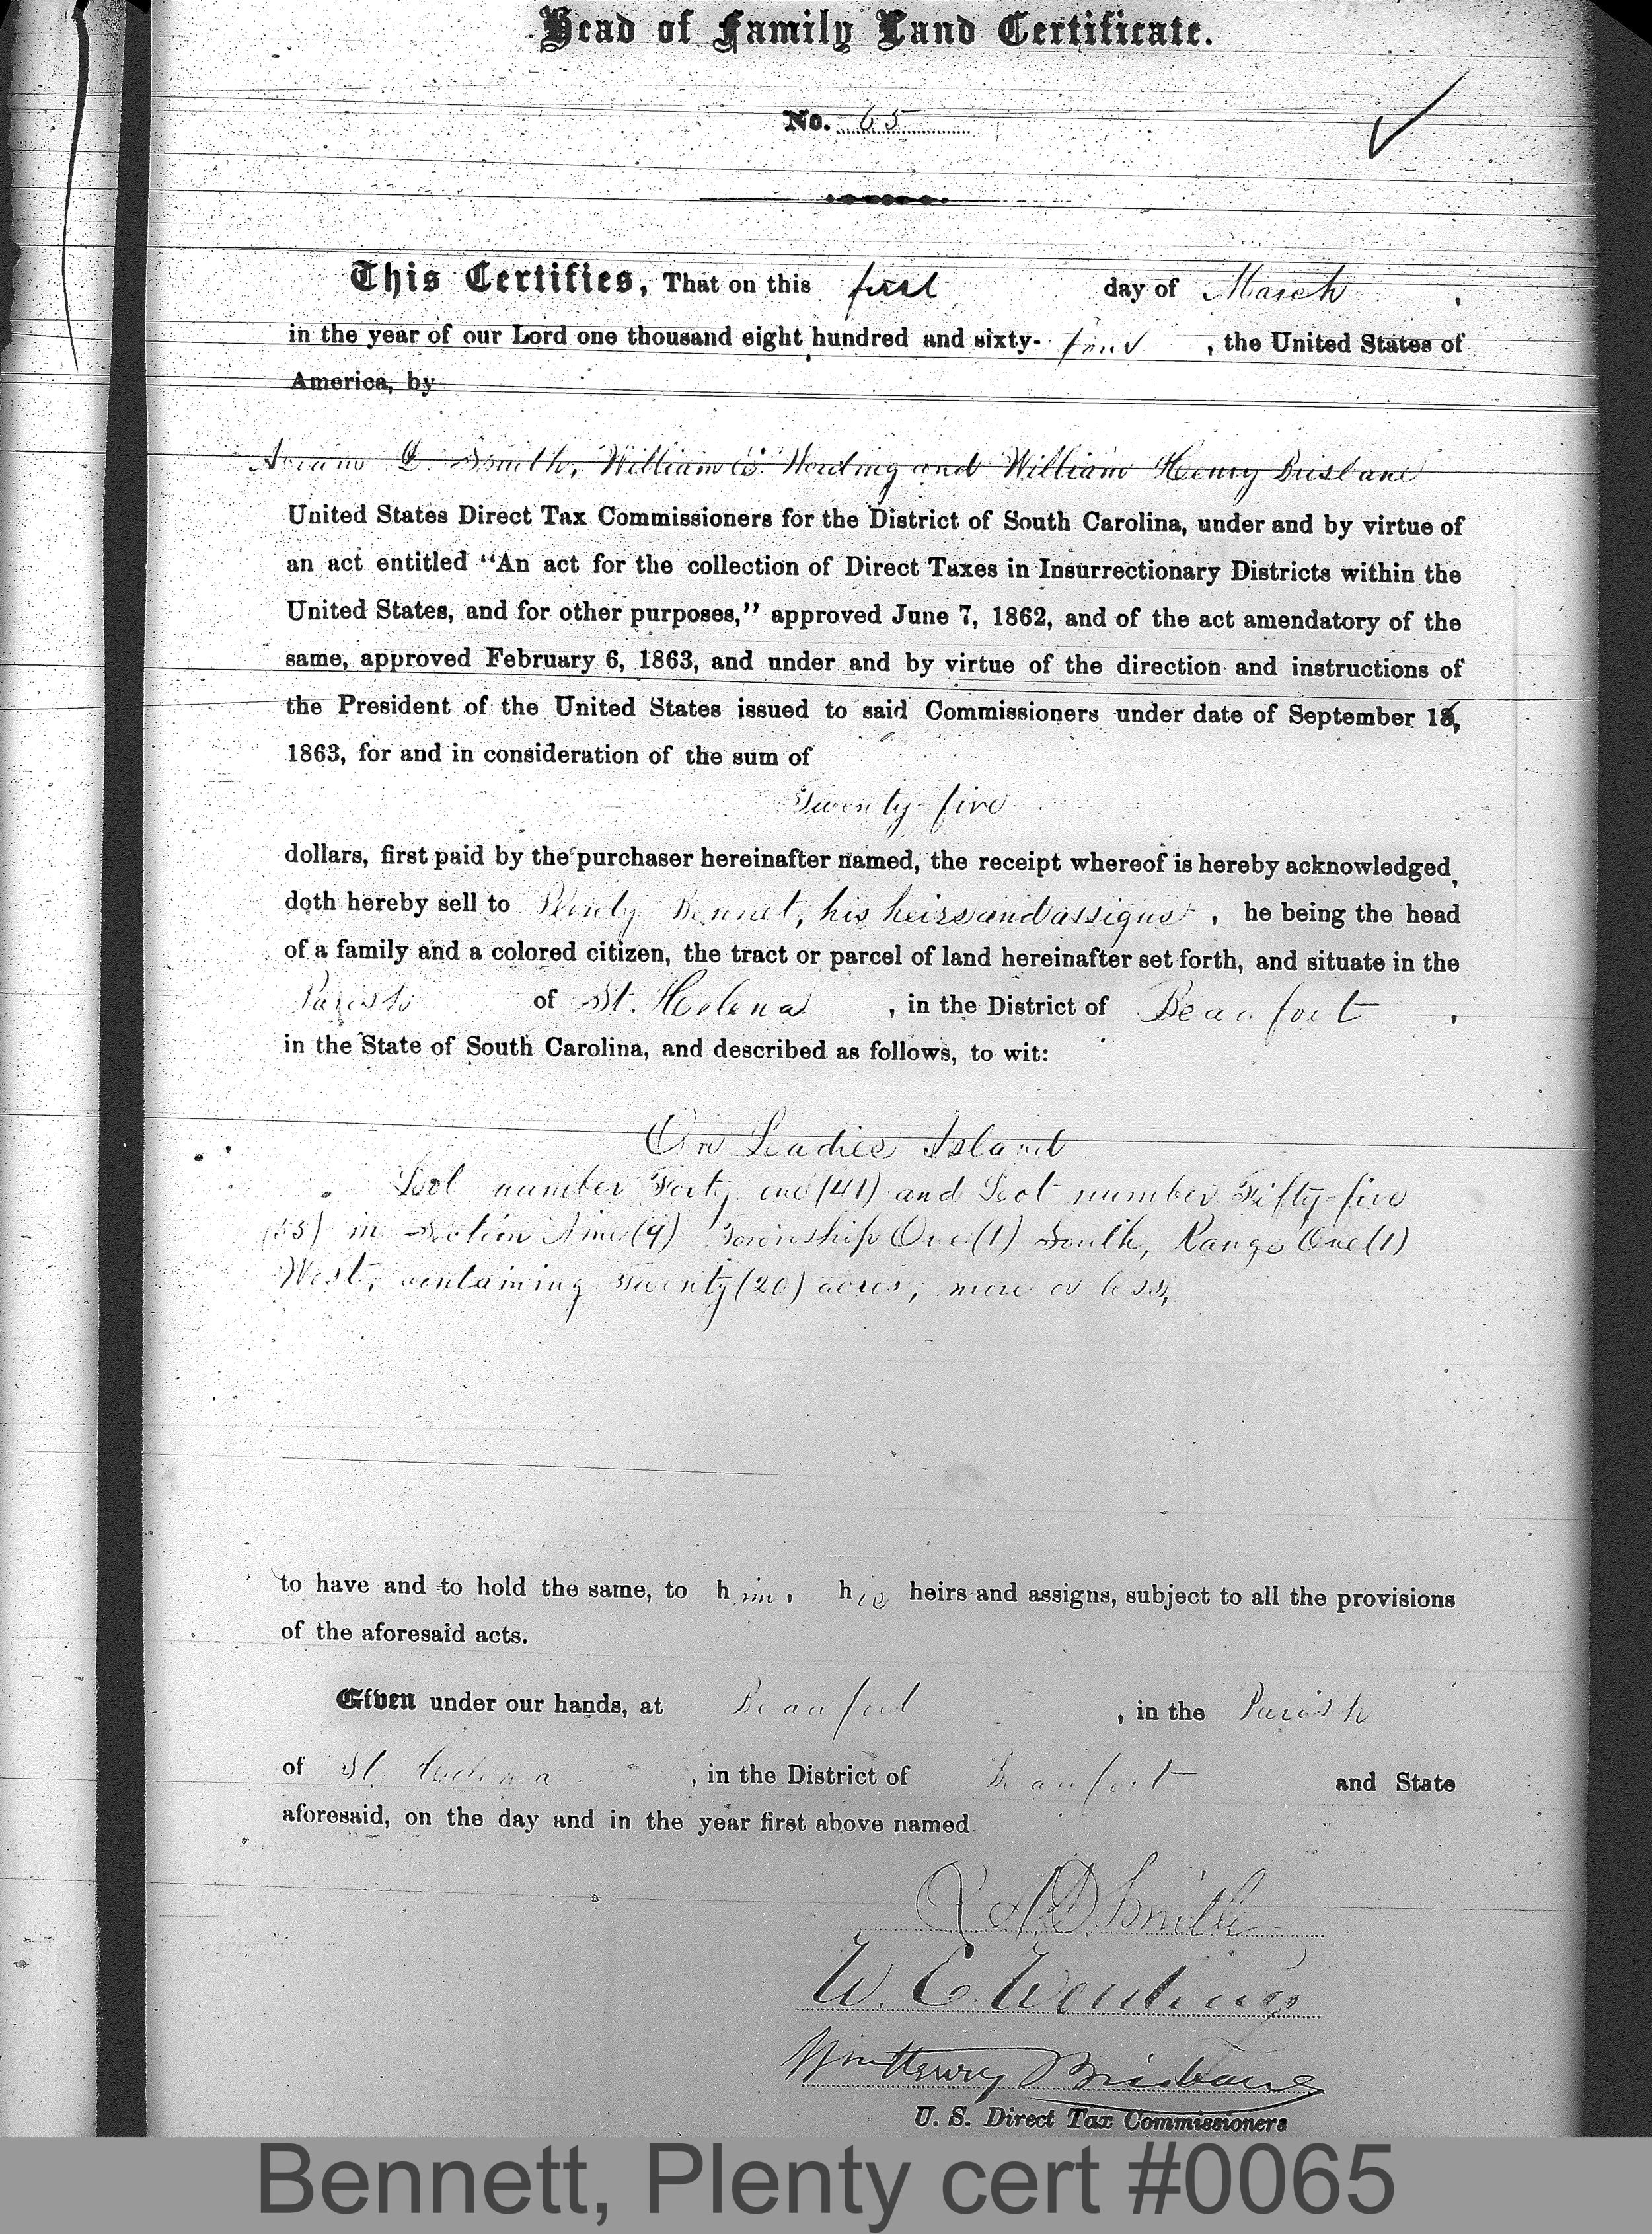 Head of Family Land Certificate.
No. 65
This Certifies, That on this first day of March,
in the year of our Lord one thousand eight hundred and sixty-four, the United States of
America, by
Abram D. Smith, William E. Wording and William Henry Brisbane
United States Direct Tax Commissioners for the District of South Carolina, under and by virtue of
an act entitled “An act for the collection of Direct Taxes in Insurrectionary Districts within the
United States, and for other purposes,” approved June 7, 1862, and of the act amendatory of the
same, approved February 6, 1863, and under and by virtue of the direction and instructions of
the President of the United States issued to said Commissioners under date of September 16,
1863, for and in consideration of the sum of
Twenty five
dollars, first paid by the purchaser hereinafter named, the receipt whereof is hereby acknowledged,
doth hereby sell to Plenty Bennet, his heirs and assigns, he being the head
of a family and a colored citizen, the tract or parcel of land hereinafter set forth, and situate in the
Parish of St. Helena, in the District of Beaufort,
in the State of South Carolina, and described as follows, to wit:
On Ladies Island
Lot number Forty one (41) and Lot number Fifty-five
(55) in Section Nine (9) Township One (1) South, Range One (1)
West, containing Twenty (20) acres, more or less,
to have and to hold the same, to him, his heirs and assigns, subject to all the provisions
of the aforesaid acts.
Given under our hands, at Beaufort, in the Parish
of St. Helena, in the District of Beaufort and State
aforesaid, on the day and in the year first above named
A. D. Smith
W. E. Wording
Wm Henry Brisbane
U. S. Direct Tax Commissioners
Bennett, Plenty cert #0065